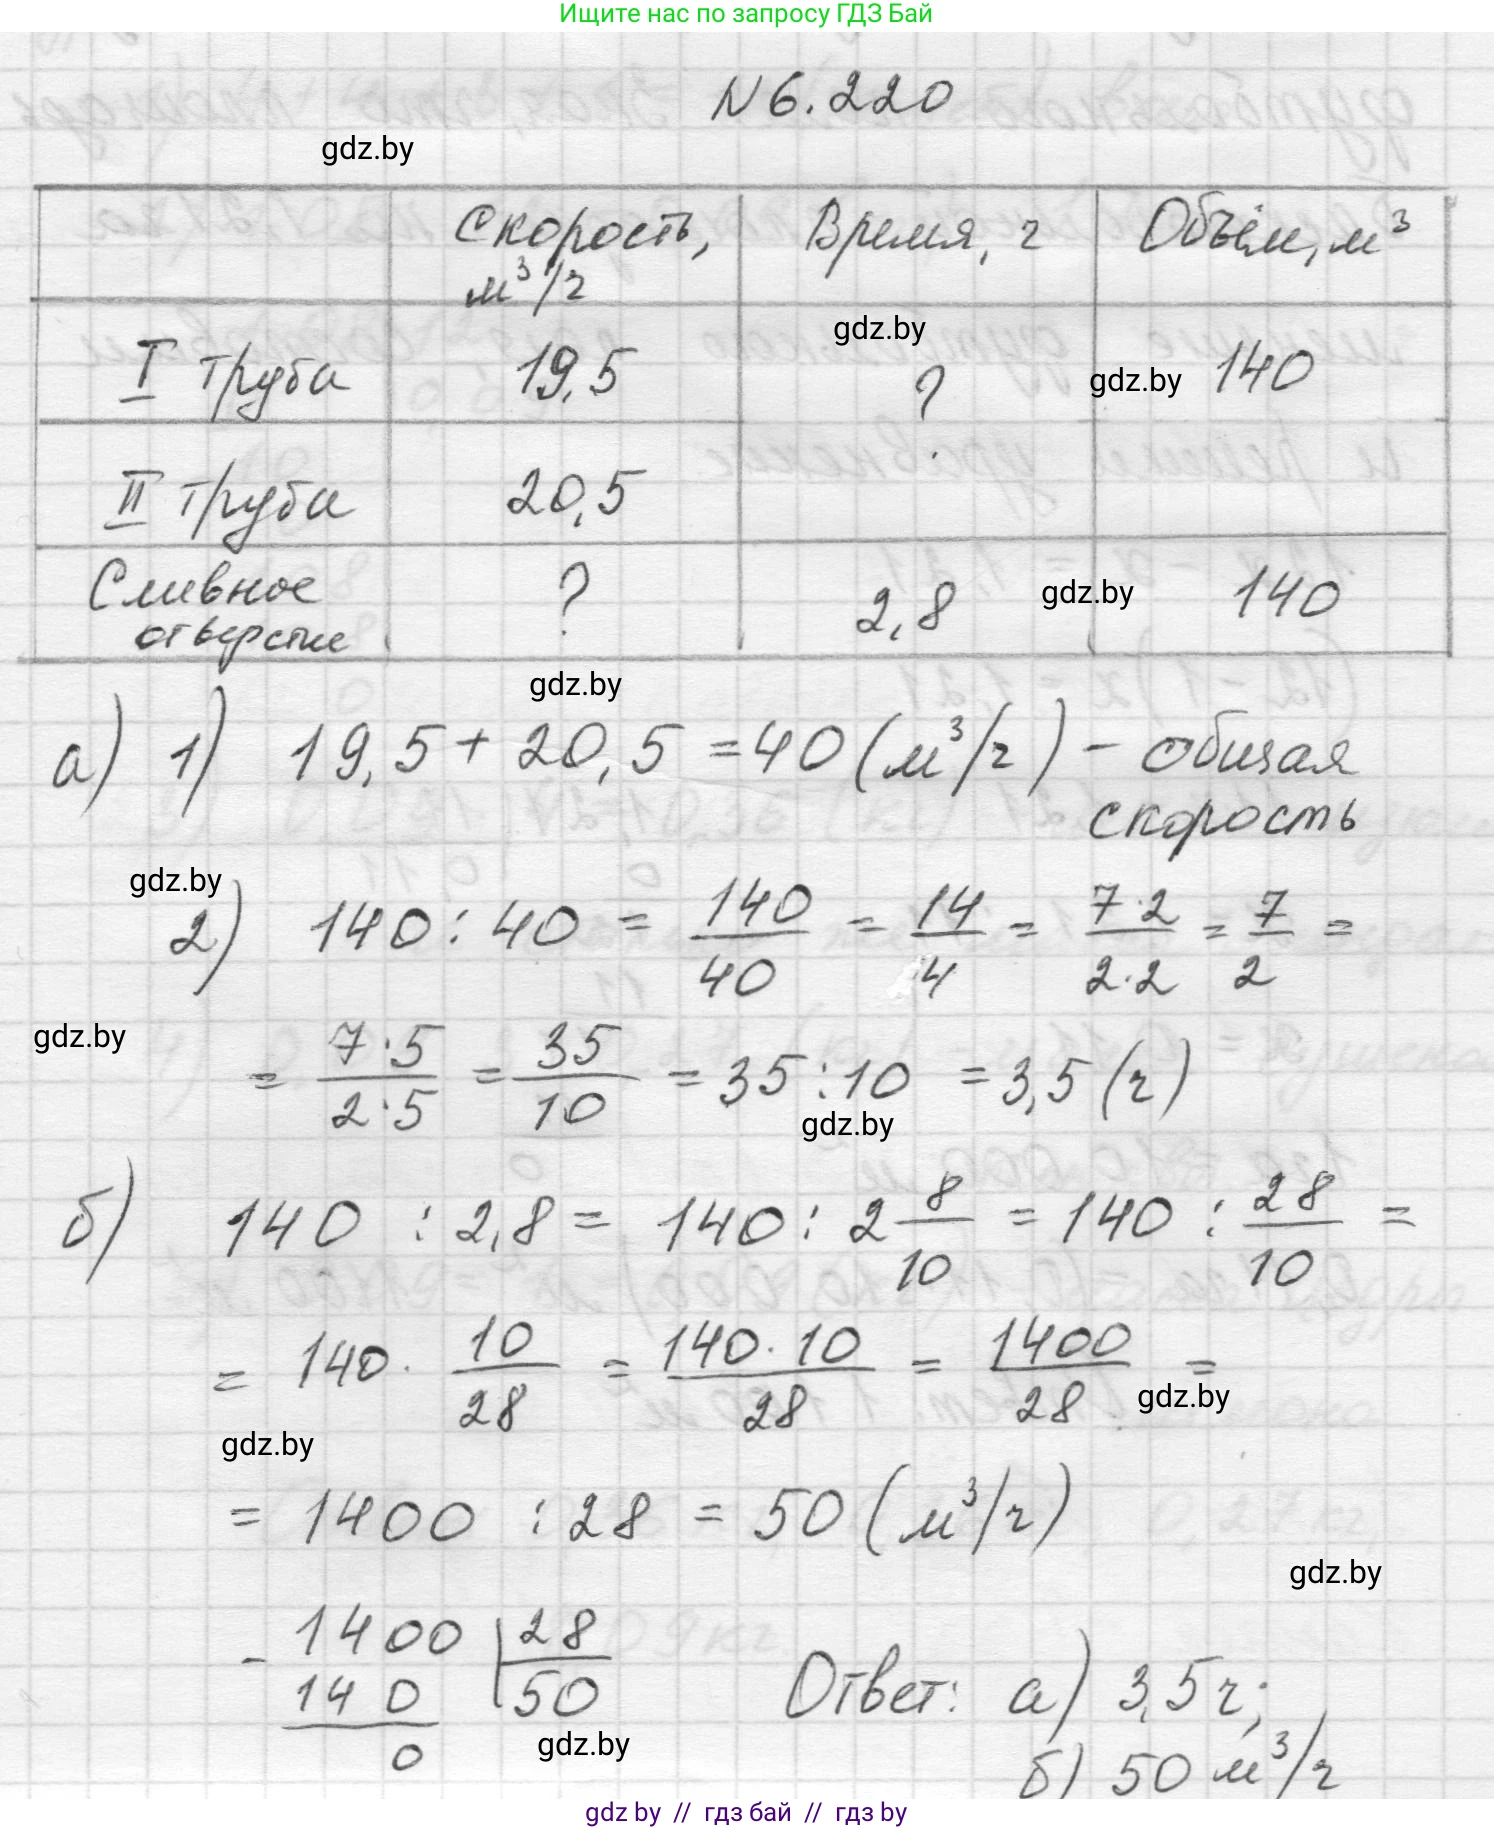 Ищите нас по запросу ГДЗ Бай
N 6.220
gdz.by
Скорость, м³/ч Время, ч Объём, м³
gdz.by
I труба 19,5 ? gdz.by 140
II труба 20,5
Сливное отверстие ? 2,8 gdz.by 140
gdz.by
а) 1) 19,5 + 20,5 = 40 (м³/ч) - общая
скорость
gdz.by
2) 140 : 40 = 140/40 = 14/4 = 7·2/2·2 = 7/2 =
gdz.by
= 7·5/2·5 = 35/10 = 35 : 10 = 3,5 (ч)
gdz.by
б) 140 : 2,8 = 140 : 2 8/10 = 140 : 28/10 =
= 140 · 10/28 = 140·10/28 = 1400/28 =
gdz.by
gdz.by
= 1400 : 28 = 50 (м³/ч)
gdz.by
- 1400 | 28
140 | 50
0
gdz.by
Ответ: а) 3,5 ч;
б) 50 м³/ч
gdz by // гдз бай // гдз by